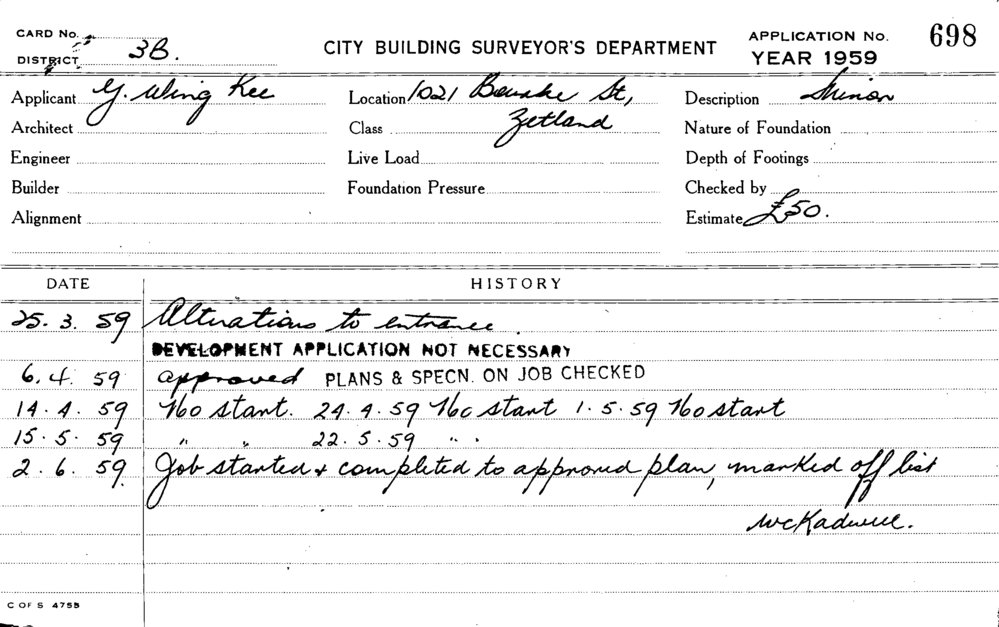 CARD No.
DISTRICT 3B.
CITY BUILDING SURVEYOR'S DEPARTMENT
APPLICATION No. 698
YEAR 1959
Applicant Y. Wing Kee Location 1021 Bourke St, Description Minor
Architect Class Zetland Nature of Foundation
Engineer Live Load Depth of Footings
Builder Foundation Pressure Checked by
Alignment Estimate £50.
DATE HISTORY
25. 3. 59 Alterations to entrance.
DEVELOPMENT APPLICATION NOT NECESSARY
6. 4. 59 approved PLANS & SPECN. ON JOB CHECKED
14. 4. 59 No start. 24. 4. 59 No start 1. 5. 59 No start
15. 5. 59 " " 22. 5. 59 " "
2. 6. 59. Job started & completed to approved plan, marked off list
C OF S 475B